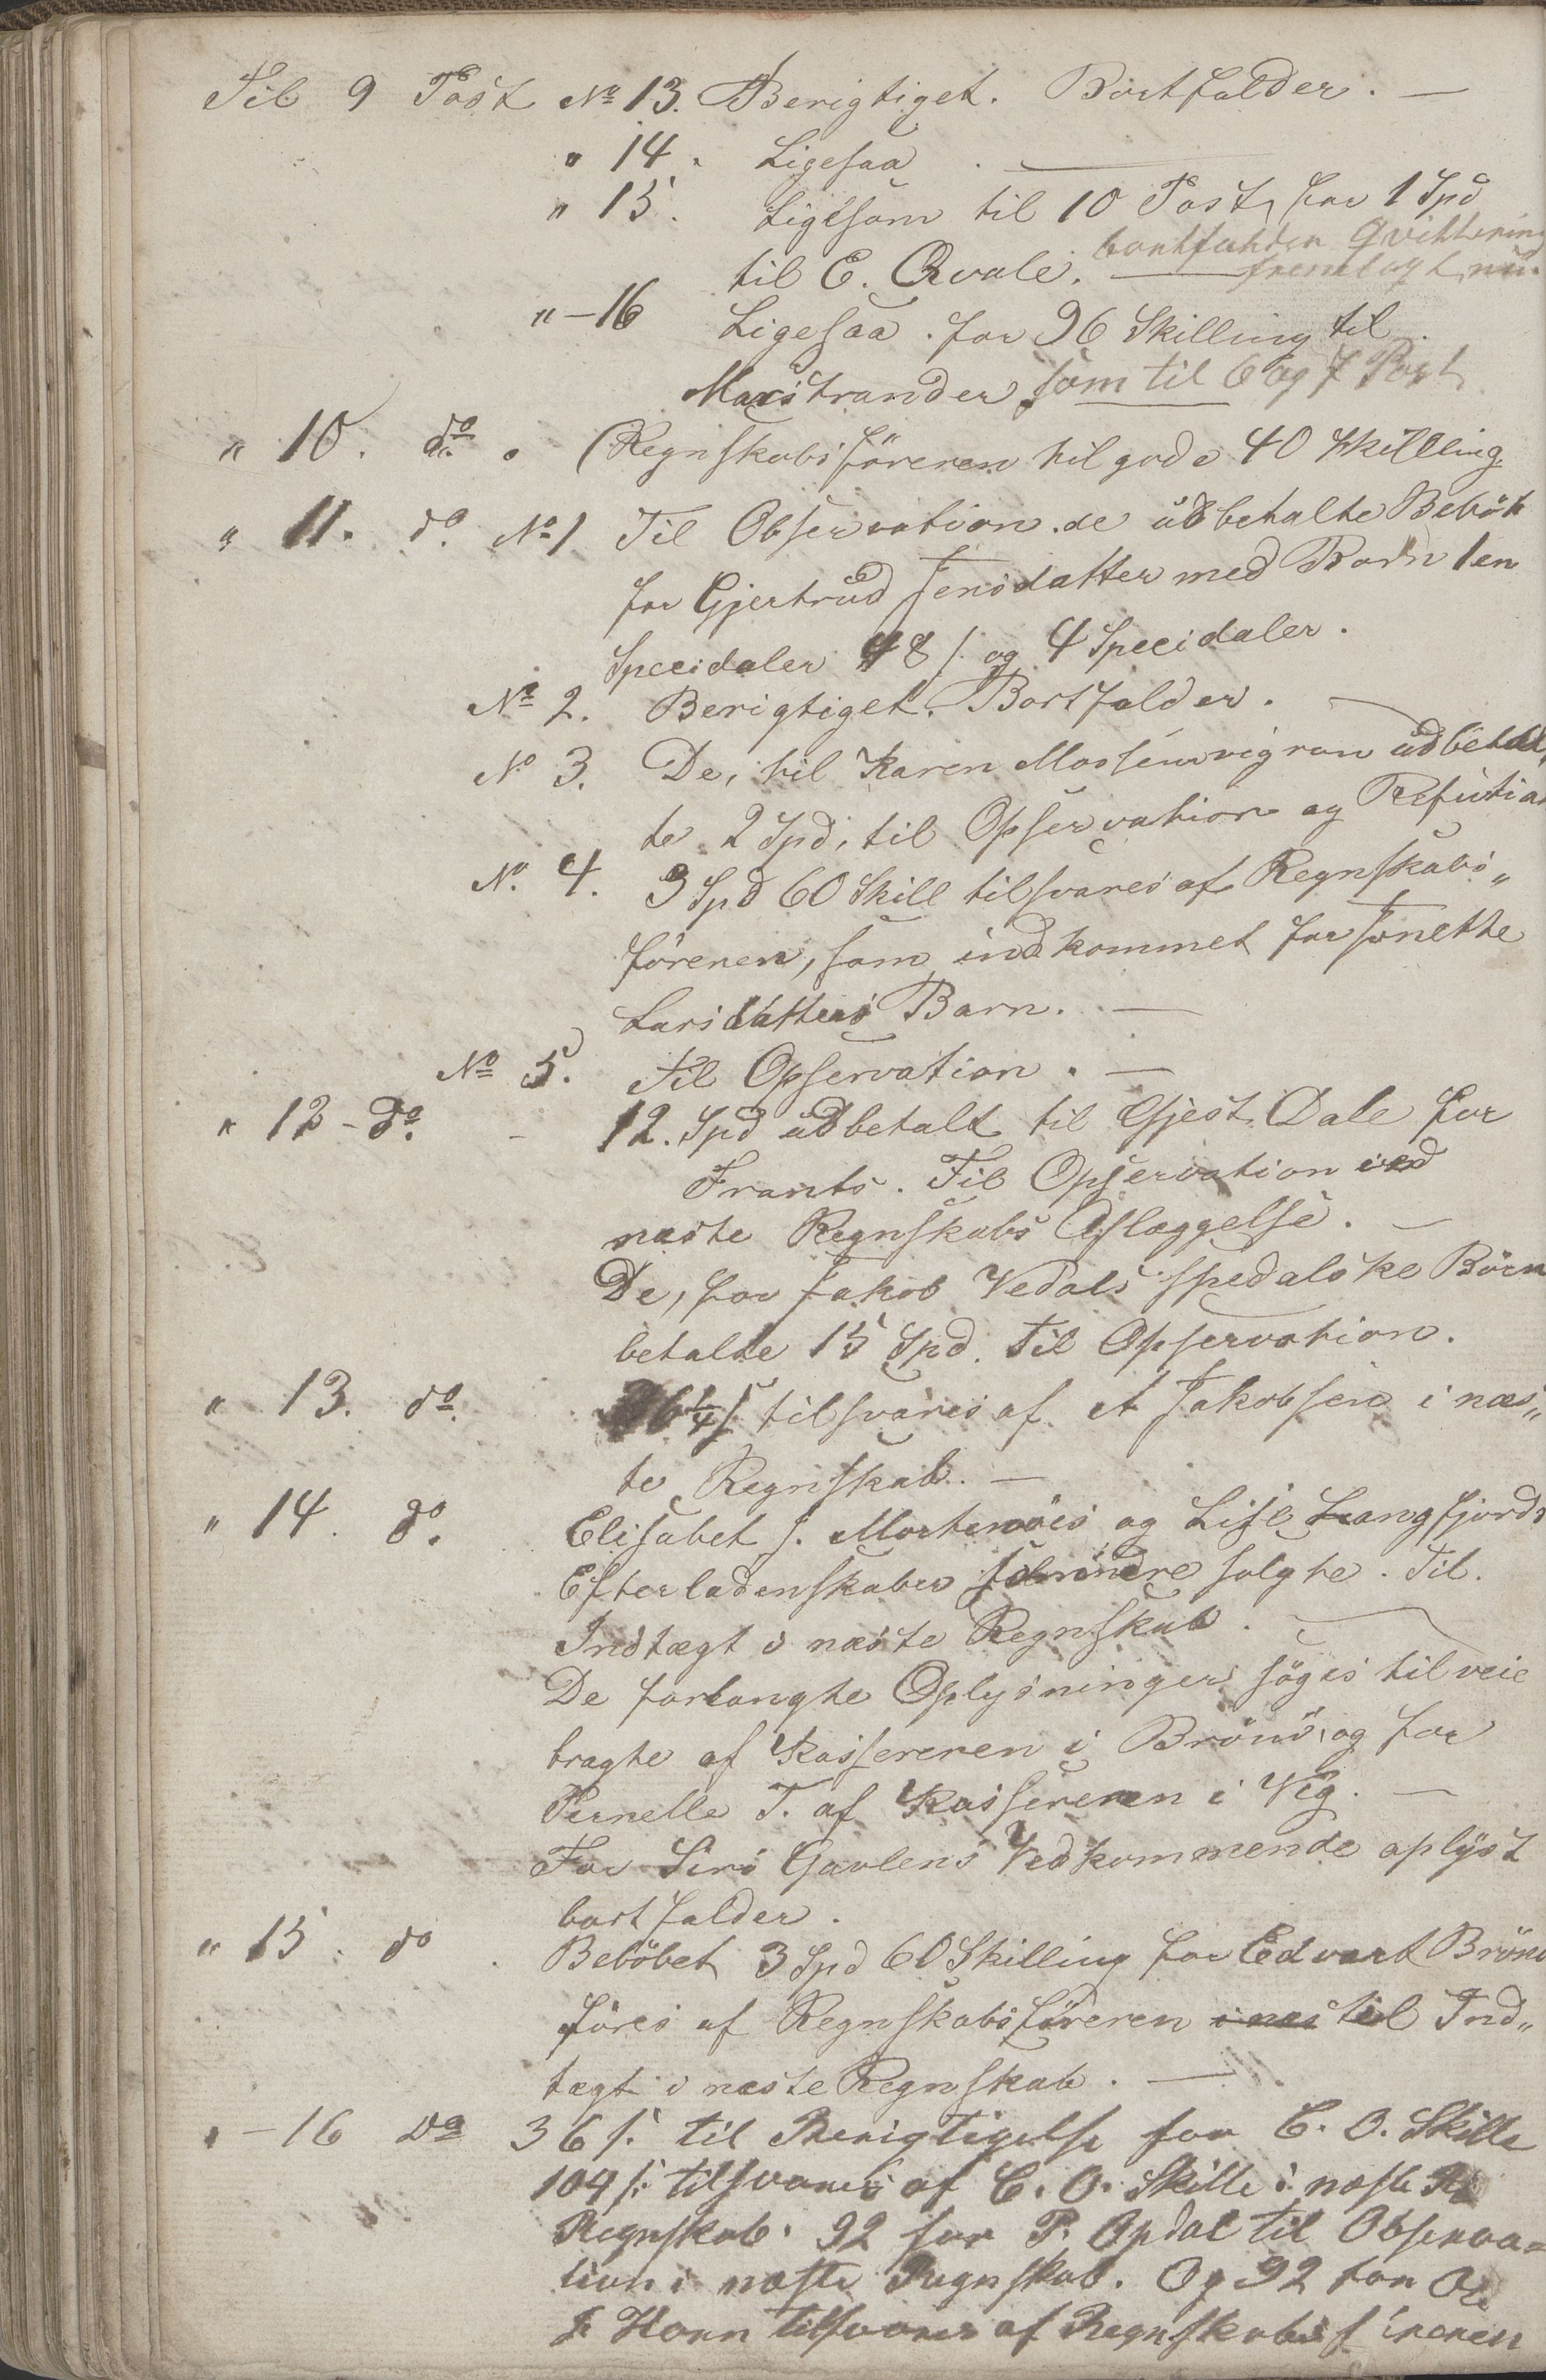 Til 9 Post No 13. Berigtiget. Bortfalder. —
" 14. Ligesaa . —
" 15. Ligesom til 10 Post, for 1 Spd
bortfalder Qvittering
til E. Qvale. — fremlagt nu.
" — 16 Ligesaa. for 96 Skilling til
Marstrander som til 6 og 7 Post
" 10. do. Regnskabsföreren tilgode 40 Skilling
" 11. do. No 1 Til Observation. de udbetalte Belöb
for Gjertrud Jensdatter med Barn 1 en
Specidaler 48 s. og 4 Specidaler.
No 2. Berigtiget. Bortfalder. —
No 3. De, til Karen udbetal„
te 2 Spd, til Opservation og
No. 4. 3 Spd 60 Skill tilsvares af Regnskabs„
föreren, som indkommet for Jonette
Larsdatters Barn. —
No 5. Til Opservation. —
" 12 - do. - 12. Spd udbetalt til Gjest. Dale for
Frants. Til Opservation ved
næste Regnskabs Aflæggelse. —
De, for Jakob Vedals spedalske Börn
betalte 15 Spd. Til Opservation.
" 13. do. 36 1/4 s tilsvares af A Jakobsen i næs„
te Regnskab. —
" 14. do. Elisabet J. og Lise Langfjords
Efterladenskaber solgte. Til.
Indtægt i næste Regnskab. —
De forlangte Oplysninger söges tilveie
bragte af Kassereren i Brönd, og for
Pernelle T. af Kassereren i Vig. —
For Siri Gavlens Vedkommende oplyst
bortfalder.
" 15. do. Belöbet 3 Spd 60 Skilling for Edvart Brönd
föres af Regnskabsföreren i næs til Ind„
tægt i næste Regnskab. —
" - 16 do 36 s. til Berigtigelse for C. O. Skille
104 s. tilsvares af C. O. Skille i næste Re
Regnskab. 92 for P. Opdal til Observa=
tion i næste Regnskab. Og 92 for
J. Horn tilsvares af Regnskabsföreren